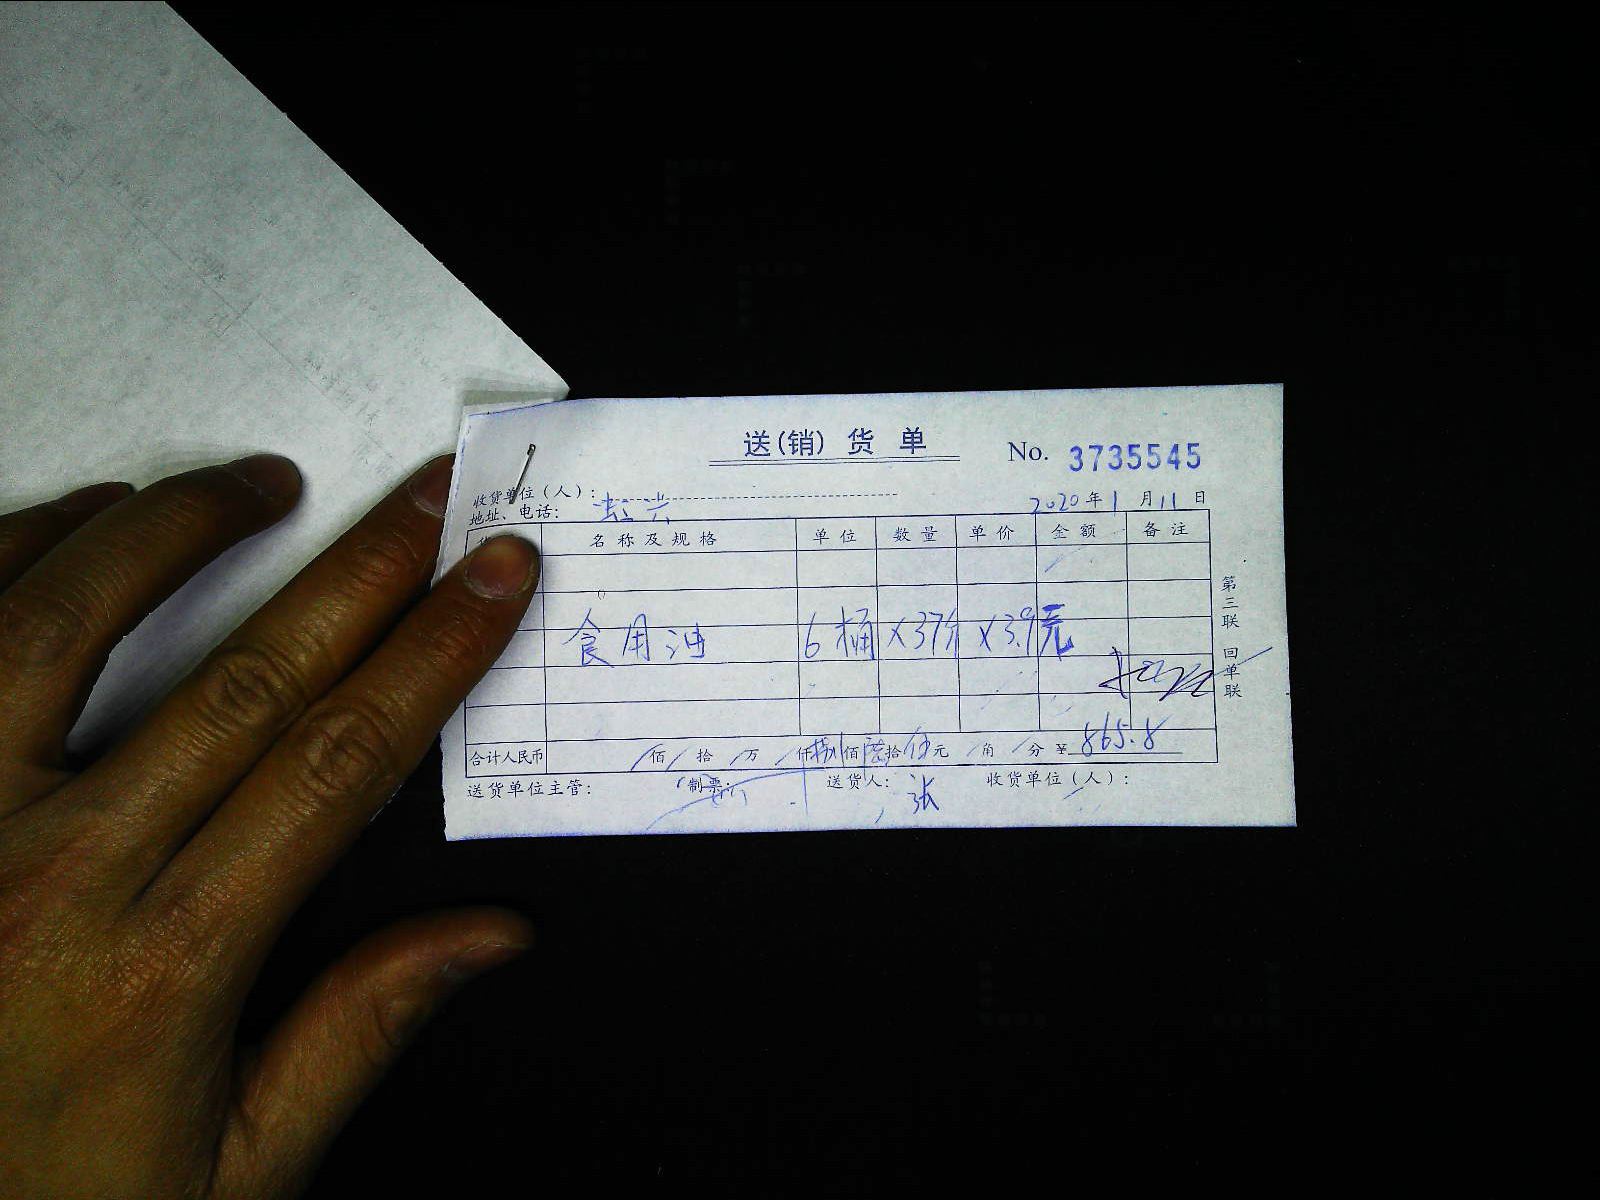 送(销)货单
No. 3735545
收货单位(人):
地址、电话:
2020年1月11日
名称及规格 单位 数量 单价 金额 备注
食用油 6桶 X37斤 X3.9元
合计人民币 佰 拾 万 仟捌佰陆拾伍元 角 分 ¥ 865.8
送货单位主管: 制票: 送货人: 张 收货单位(人):
第三联 回单联